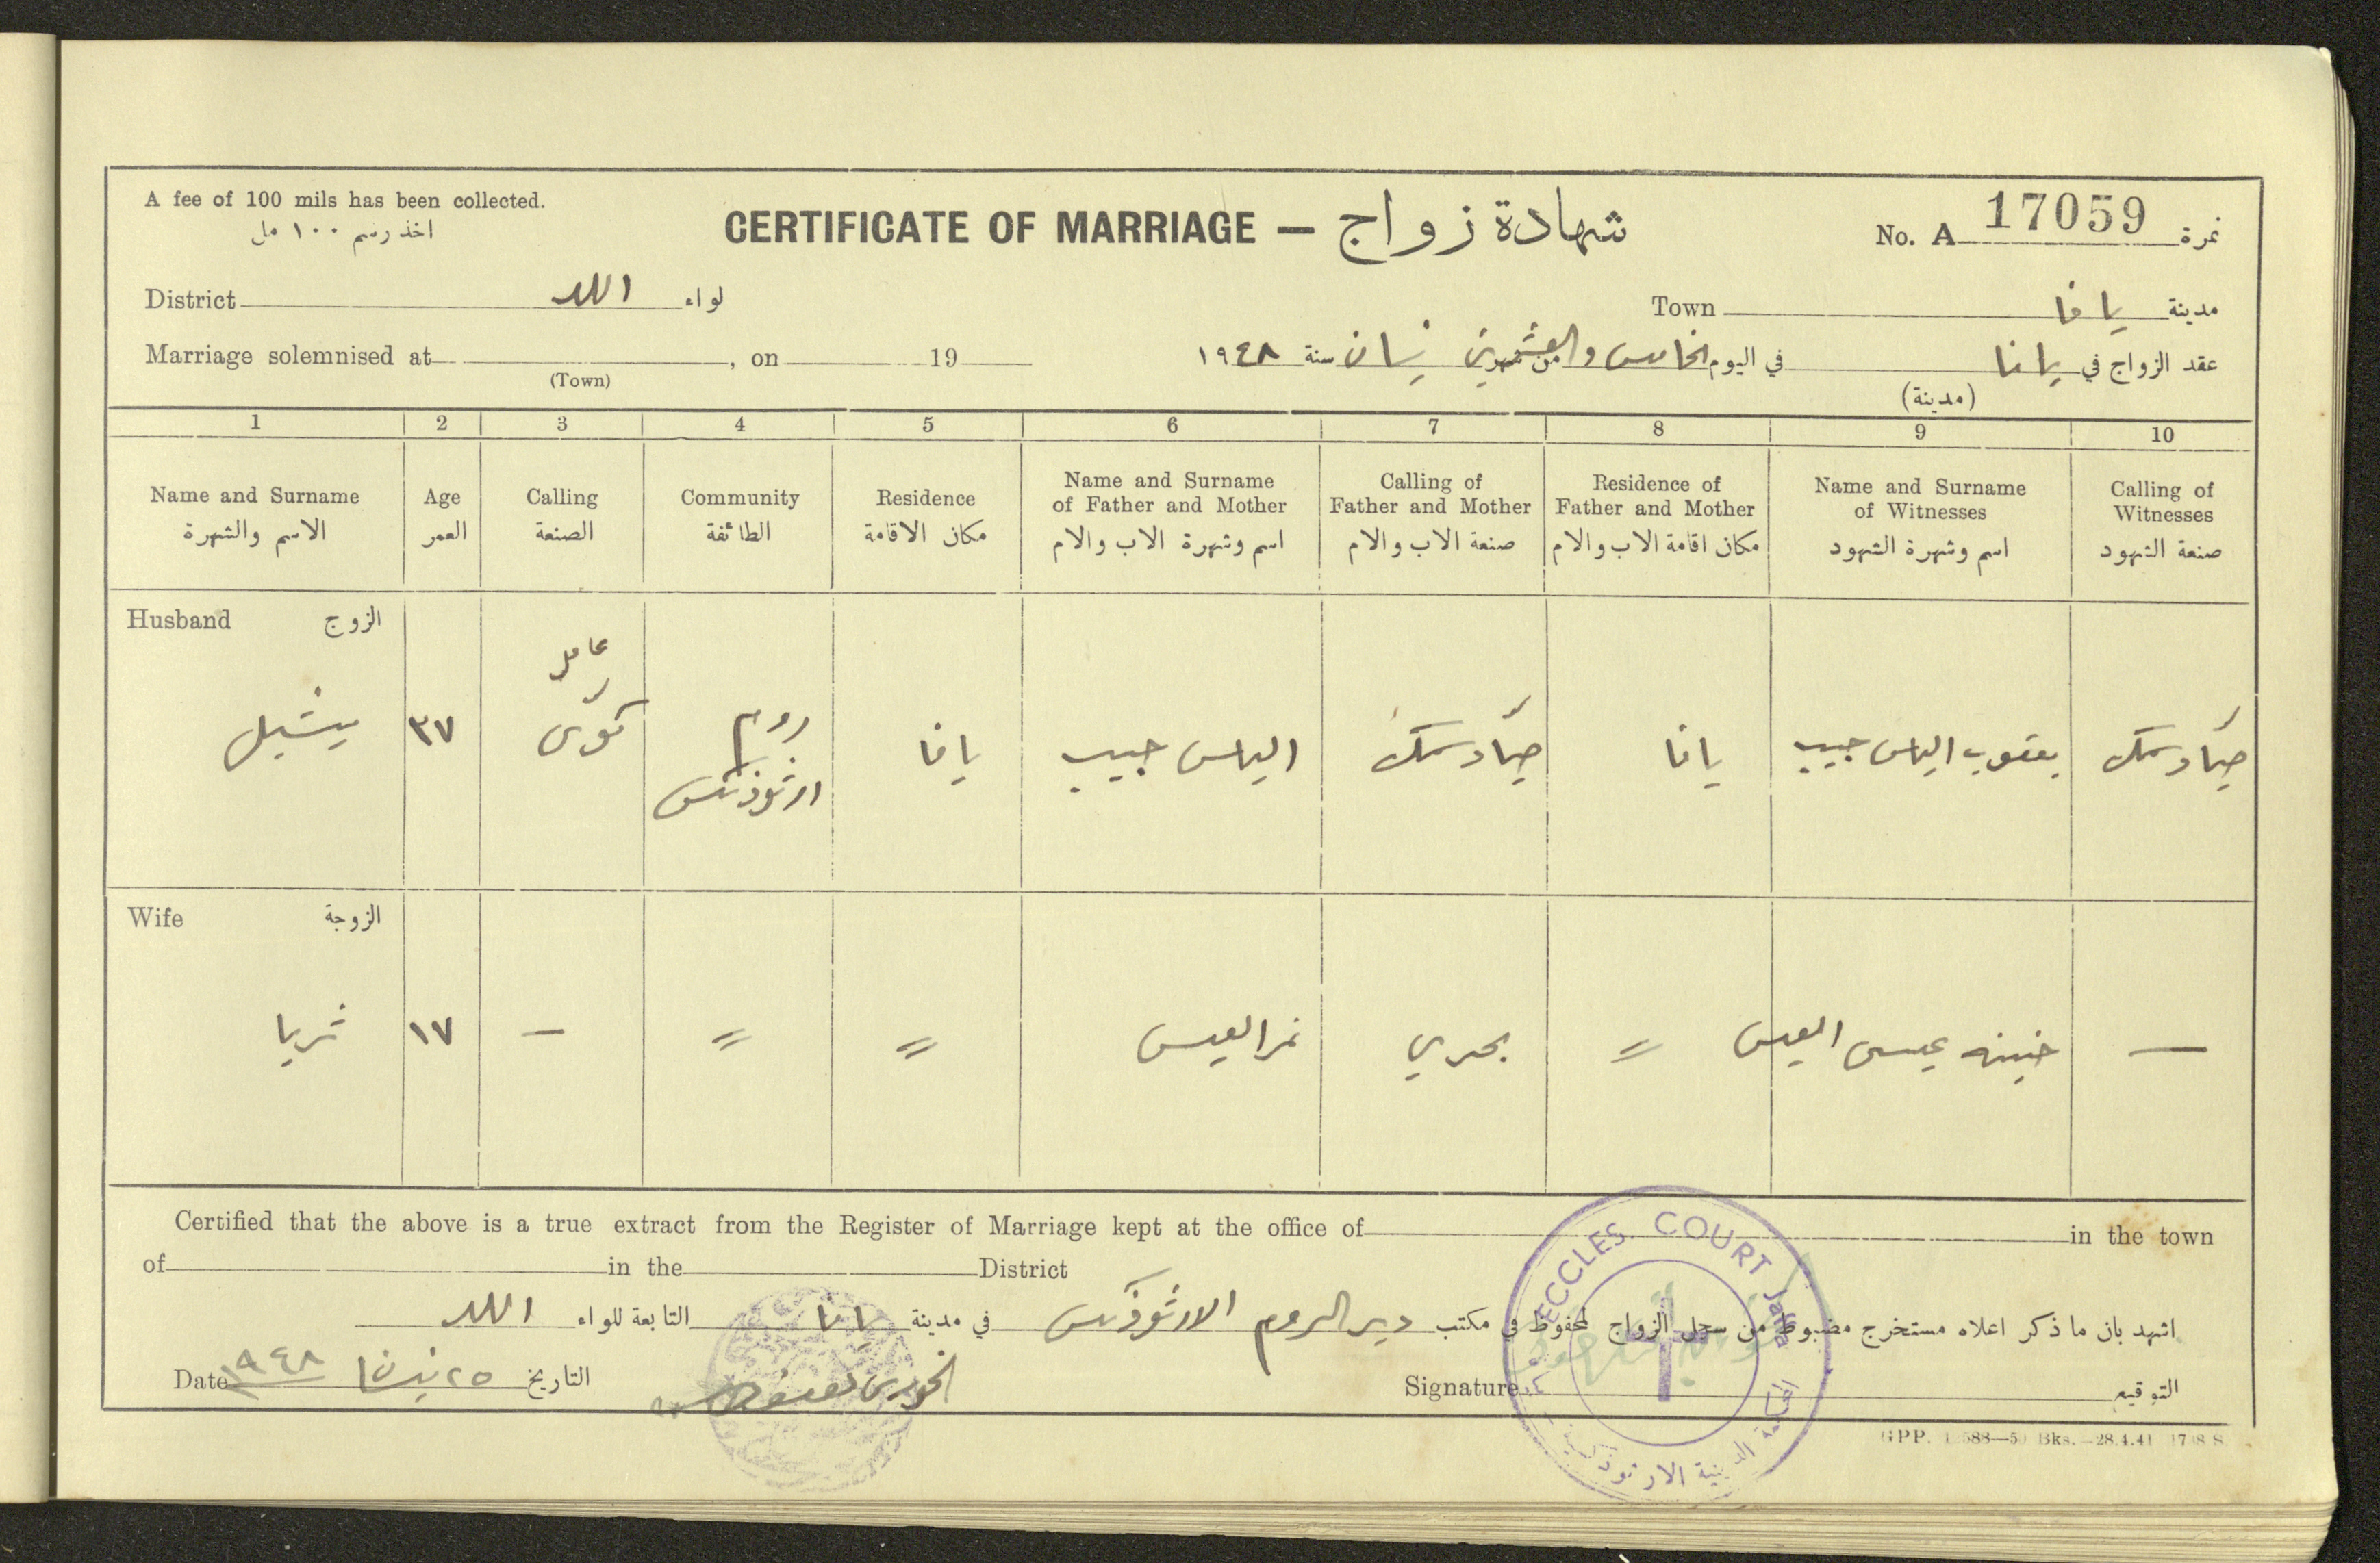 A fee of 100 mils has been collected.
اخذ رسم ١٠٠ مل
CERTIFICATE OF MARRIAGE — شهادة زواج
No. A 17059 نمرة
District اللد لواء
Town يافا مدينة
Marriage solemnised at , on 19
(Town)
عقد الزواج في يافا في اليوم الخامس والعشرين من شهر نيسان سنة ١٩٤٨
(مدينة)
1 2 3 4 5 6 7 8 9 10
Name and Surname
الاسم والشهرة
Age
العمر
Calling
الصنعة
Community
الطائفة
Residence
مكان الاقامة
Name and Surname
of Father and Mother
اسم وشهرة الاب والام
Calling of
Father and Mother
صنعة الاب والام
Residence of
Father and Mother
مكان اقامة الاب والام
Name and Surname
of Witnesses
اسم وشهرة الشهود
Calling of
Witnesses
صنعة الشهود
Husband الزوج
ميشيل
٣٧
عامل
روم
ارثوذكس
يافا
الياس حبيب
صياد سمك
يافا
يعقوب الياس حبيب
صياد سمك
Wife الزوجة
ثريا
١٧
—
〃
〃
نمر العيسى
بحري
〃
عيسى العيسى
—
Certified that the above is a true extract from the Register of Marriage kept at the office of in the town
of in the District
اشهد بان ما ذكر اعلاه مستخرج مضبوط من سجل الزواج المحفوظ في مكتب دير الروم الارثوذكس في مدينة يافا التابعة للواء اللد
Date ٢٥ نيسان ١٩٤٨ التاريخ
Signature التوقيع
ECCLES. COURT Jaffa
الدينية الارثوذكسية
Bks.—28.4.41